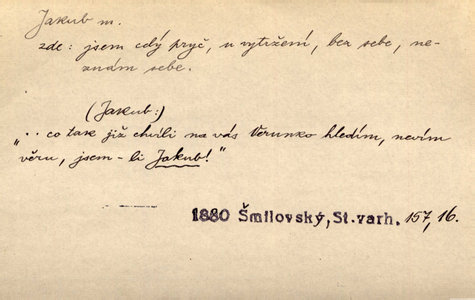 Jakub m.
zde: jsem celý pryč, u vytržení, bez sebe, ne-
znám sebe.
(Jakub:)
„.. co tak již chvíli na vás Verunko hledím, nevím
věru, jsem-li Jakub!"
1880 Šmilovský, St.varh. 157,16.